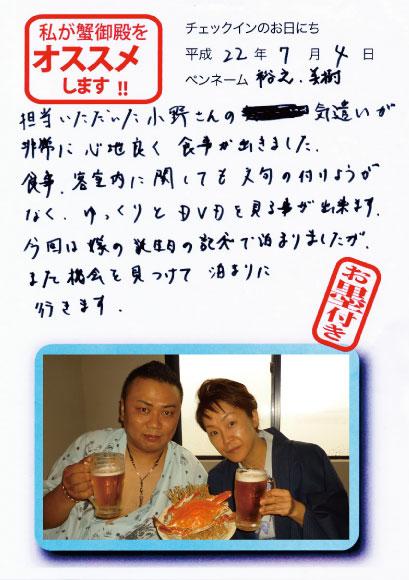 私が蟹御殿を
オススメ
します!!
チェックインのお日にち
平成 22 年 7 月 4 日
ペンネーム 裕之・美樹
担当いただいた小野さんの 気遣いが
非常に心地良く食事が出きました。
食事、客室内に関しても文句の付けようが
なく、ゆっくりとDVDを見る事が出来ます。
今回は嫁の誕生日の記念で泊まりましたが、
また機会を見つけて泊まりに
行きます。
お墨付き